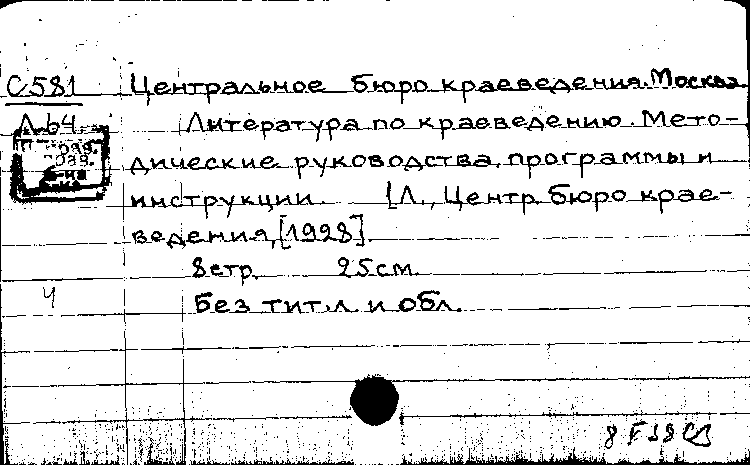 С581 Центральное бюро краеведения. Москва
Л64 Литература по краеведению. Мето-
дические руководства, программы и
инструкции. [Л., Центр. бюро крае-
ведения, [1928].
8стр. 25см.
Ч Без тит.л. и обл.